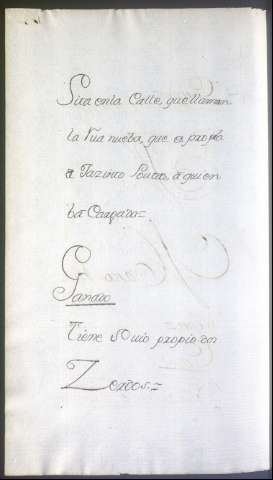 Sita en la Calle, que llaman
la Rua nueba, que es propia
de Jazinto Souto, a quien
ba Cargada=
Ganado
Tiene suio propio dos
Zerdos=